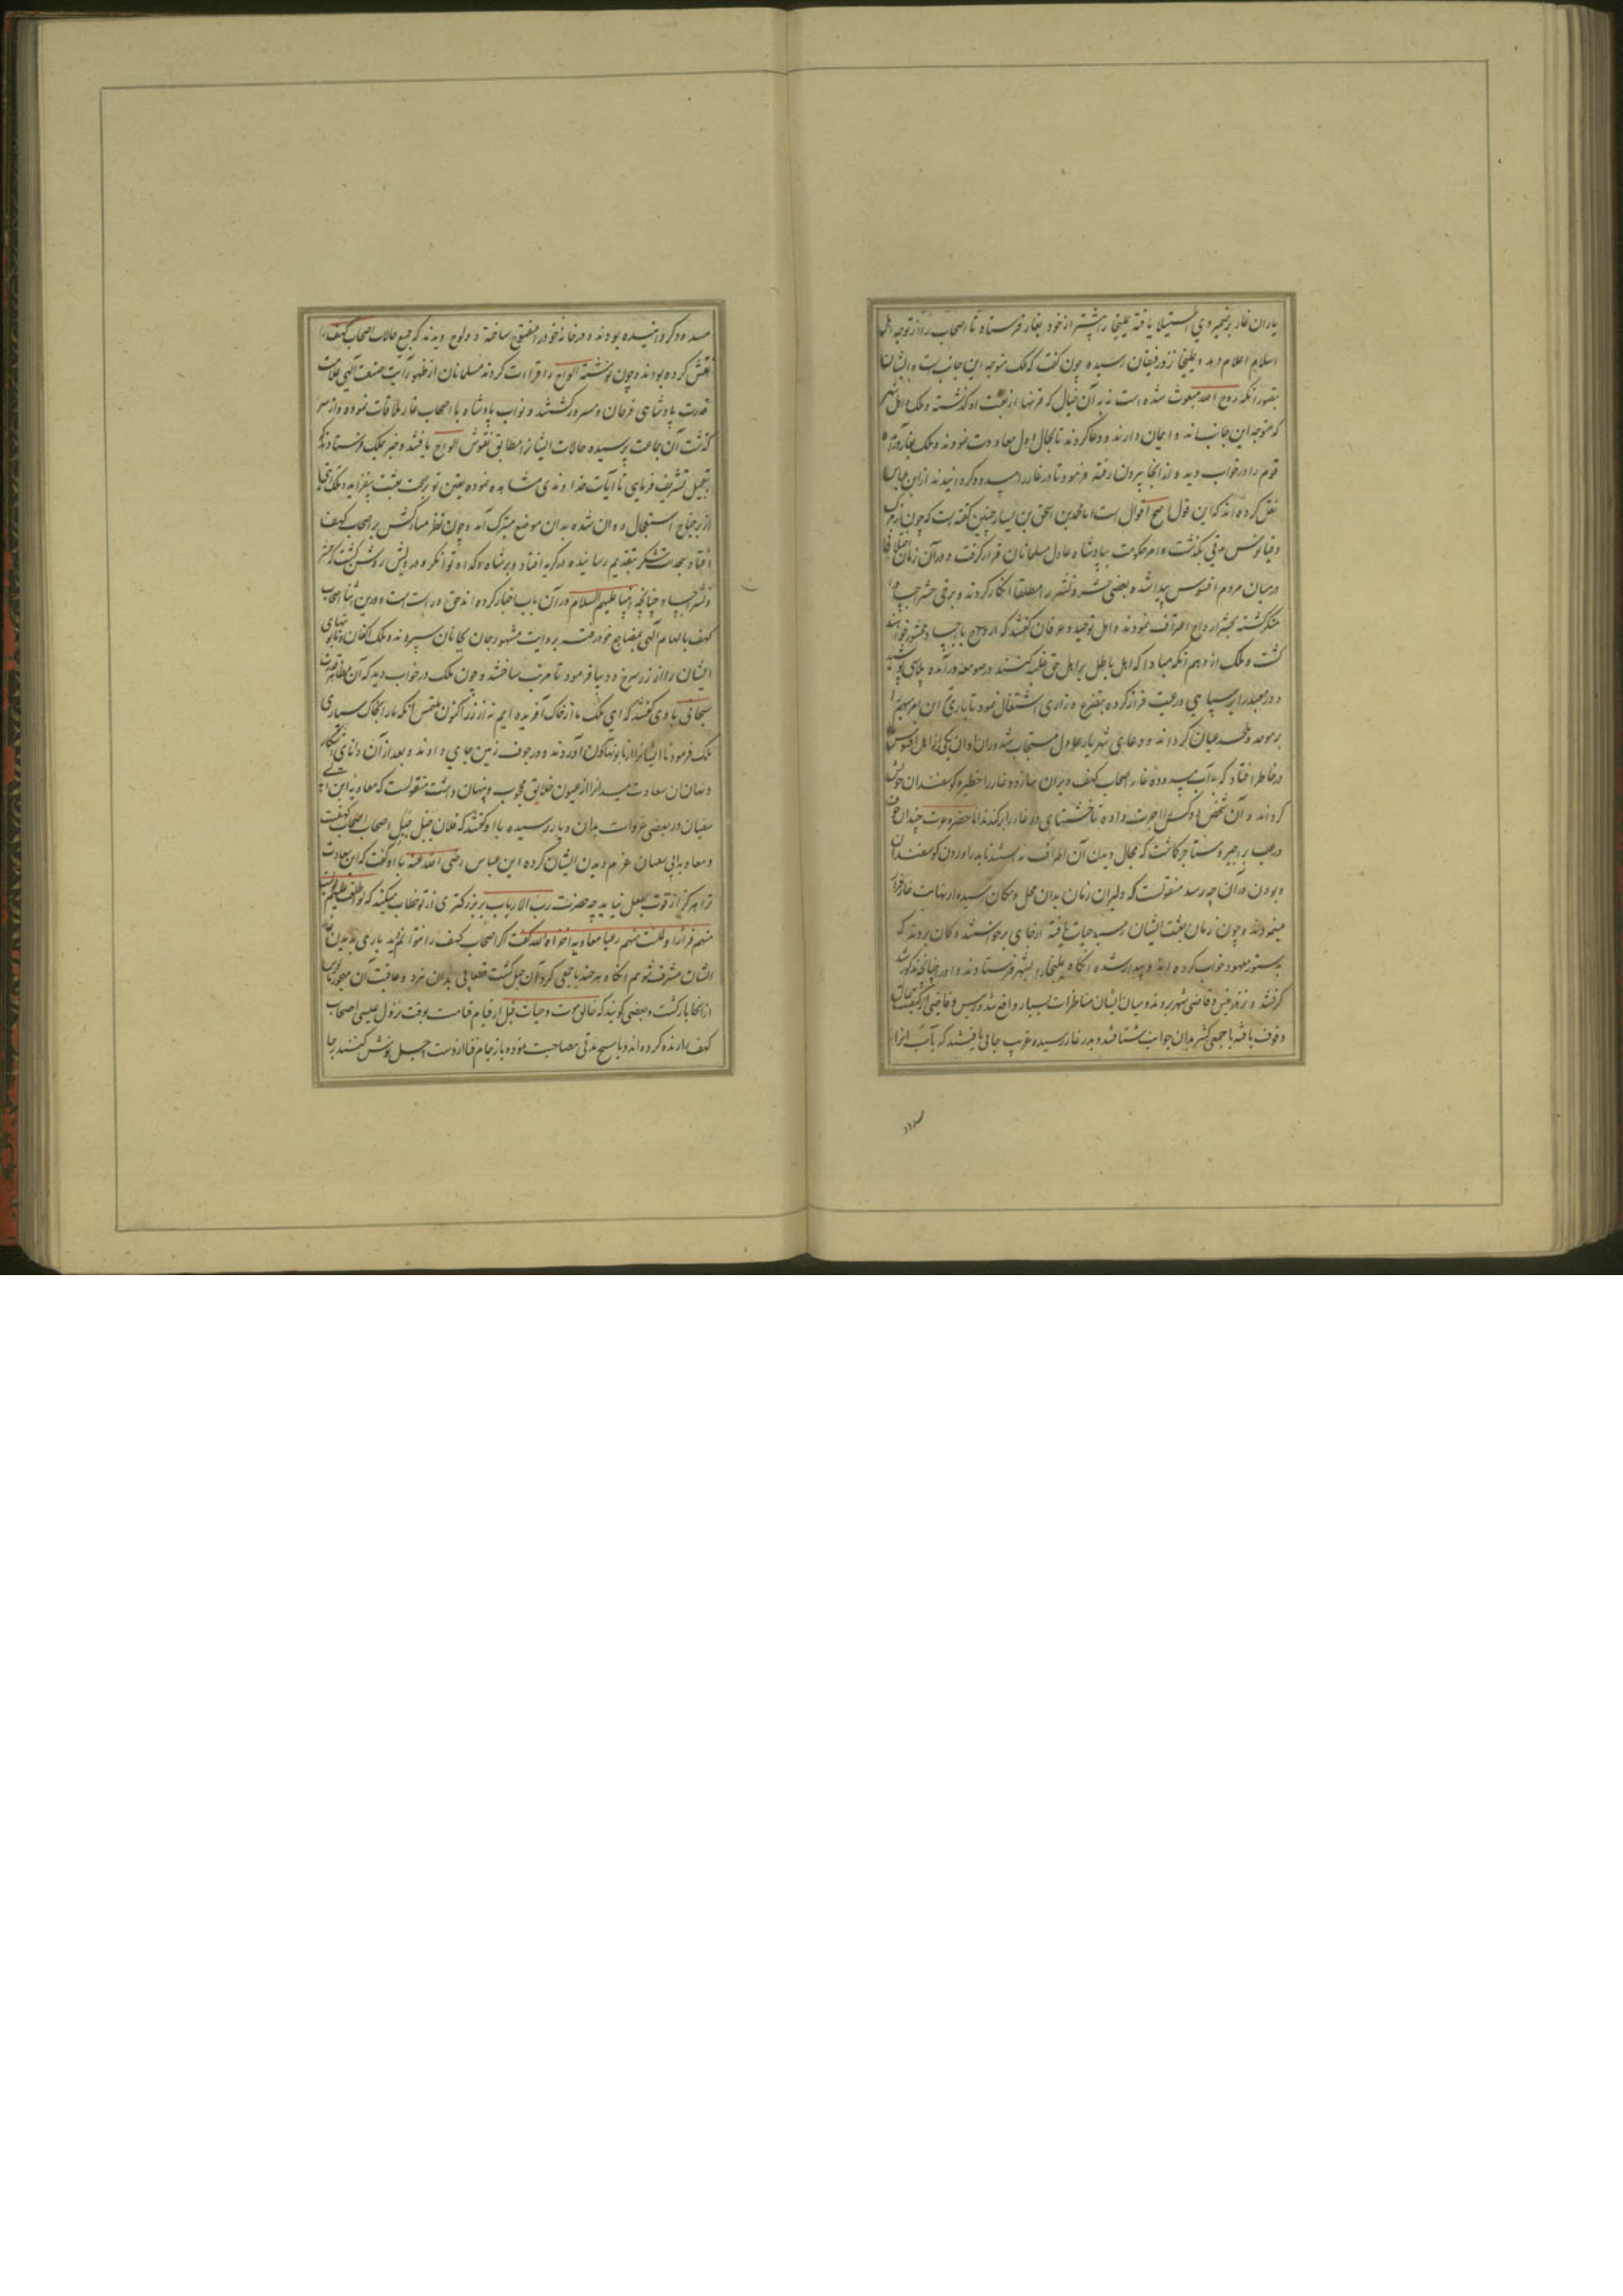 یاران غار بر ضمیر وی استیلا یافته یملیخا را پیشتر از خود بغار فرستاد تا اصحاب را از توجه اهل
اسلام اعلام دهد و یملیخا نزد رفیقان رسیده چون گفت که ملک متوجه این جانب است و ایشان
بتصور آنکه روح الله مبعوث شده است نه به آن خیال که قرنها از بعثت او گذشته و ملک و اهل شهر
که متوجه این جانب اند و ایمان دارند و دعا کردند تا بحال اول معاودت نمودند و ملک بغار درآمد
قوم را در خواب دید و از آنجا بیرون رفته فرمود تا در غار را مسدود گردانیدند از ابن عباس
نقل کرده اند که این قول اصح اقوال است اما محمد بن اسحق بن یسار چنین گفته است که چون از مرگ
دقیانوس مدتی بگذشت و امر حکومت بپادشاه عادل مسلمانان قرار گرفت و در آن زمان اختلاف
در میان مردم افسوس پیدا شده بعضی حشر و نشر را مطلقا انکار کردند و برخی حشر اجساد را
منکر گشته بحشر ارواح اعتراف نمودند و اهل توحید و عرفان گفتند که ارواح با اجساد محشور خواهند
گشت و ملک از وهم آنکه مبادا که اهل باطل بر اهل حق غلبه کنند در صومعه درآمده پلاس پوشید
و در معبد را بر سپاهی و رعیت فراز کرده بتضرع و زاری اشتغال نمود تا باری تع این امر مبهم را
بر موحد و ملحد عیان گرداند و دعای شهریار عادل مستجاب شد در آن اوان یکی از اهل افسوس
در خاطر افتاد که در غار اصحاب کهف ویران سازد و غار را حظیره گوسفندان خویش
گرداند و آن شخص دو کس را اجرت داده تا خشتهای در غار را برکندند اما حضرت عزت چندان خوف
و رعب بر اجیر و مستاجر گماشت که مجال دیدن آن اطراف نداشتند تا بدرآوردن گوسفندان
و بودن در آن چه رسد منقولست که دلیران زمان بدان محل و مکان رسیده از نهایت خوف فرار
مینمودند و چون زمان بعثت ایشان رسید حیات یافته از جای برخواستند و گمان بردند که
بدستور معهود خواب کرده اند و بیدار شده آنگاه یملیخا را بشهر فرستادند و او را چنانچه مذکور شد
گرفتند و نزد رئیس و قاضی شهر بردند و میان ایشان مناظرات بسیار واقع شد و رئیس و قاضی از کیفیت حال
وقوف یافته با جمعی کثیر بدان جوانب شتافتند و بدر غار رسیده غریب جائی یافتند که باب آنرا
مسدود
مسدود گردانیده بودند و در خانه خود را مفتوح ساخته دو لوح دیدند که جمیع حالات اصحاب کهف را
نقش کرده بودند و چون نوشته الواح را قراءت کردند مسلمانان از ظهور آیت صنعت الهی و علامت
قدرت پادشاهی فرحان و مسرور گشتند و نواب پادشاه با اصحاب غار ملاقات نموده و از سر
گذشت آن جماعت پرسیده حالات ایشانرا مطابق نقوش الواح یافتند و خبر بملک فرستادند که
بتعجیل تشریف فرمای تا آیات خداوندی مشاهده نموده یقین تو بر صحت بعثت بیفزاید و ملک
از بر جناح استعجال روان شده بدان موضع متبرک آمد و چون نظر مبارکش بر اصحاب کهف
افتاد سجدات شکر بتقدیم رسانیده در گریه افتاد و بر شاه و گدا و توانگر و درویش روشن گشت که حشر
و نشر اجساد چنانچه انبیا علیهم السلام در آن باب اخبار کرده اند حق و راست است و درین اثنا اصحاب
کهف بالهام الهی بمضاجع خود رفته بروایت مشهور جان بجانان سپردند و ملک اکفان و تابوتهای
ایشان را از زر سرخ و دیبا فرمود تا مرتب ساختند و چون ملک در خواب دید که آن مظاهر قدرت
سبحانی با وی گفتند که ای ملک ما از خاک آفریده ایم نه از زر اکنون ملتمس آنکه ما را بخاک سپاری
ملک فرمود تا ایشانرا از تابوتها بیرون آوردند و در جوف زمین جای دادند و بعد از آن دانای آشکار
و نهان آن سعادتمندانرا از عیون خلایق محجوب و پنهان داشت منقولست که معاویه ابن ابی
سفیان در بعضی غزوات بدان دیار رسیده با او گفتند که فلان جبل جبل اصحاب کهفست
و معاویه ابی سفیان عزم دیدن ایشان کرده ابن عباس رضی الله عنه با او گفت که این سعادت
ترا هرگز از قوت بفعل نیاید چه حضرت رب الارباب بر بزرگتری از تو خطاب میکند که لو اطلعت علیهم لولیت
منهم فرارا و لملئت منهم رعبا معاویه اخزاه الله گفت اگر اصحاب کهف را نتوانم دید باری بدیدن غار
ایشان مشرف شوم آنگاه هر چند با جمعی گرد آن جبل گشت قطعا پی بدان نبرد و عاقبت آن مهجور مایوس
از آنجا بازگشت و بعضی گویند که خالق موت و حیات قبل از قیام قیامت بوقت نزول عیسی اصحاب
کهف را زنده کرده اند و با مسیح مدتی مصاحبت نموده باز جام فنا از دست اجل نوش کنند چنا